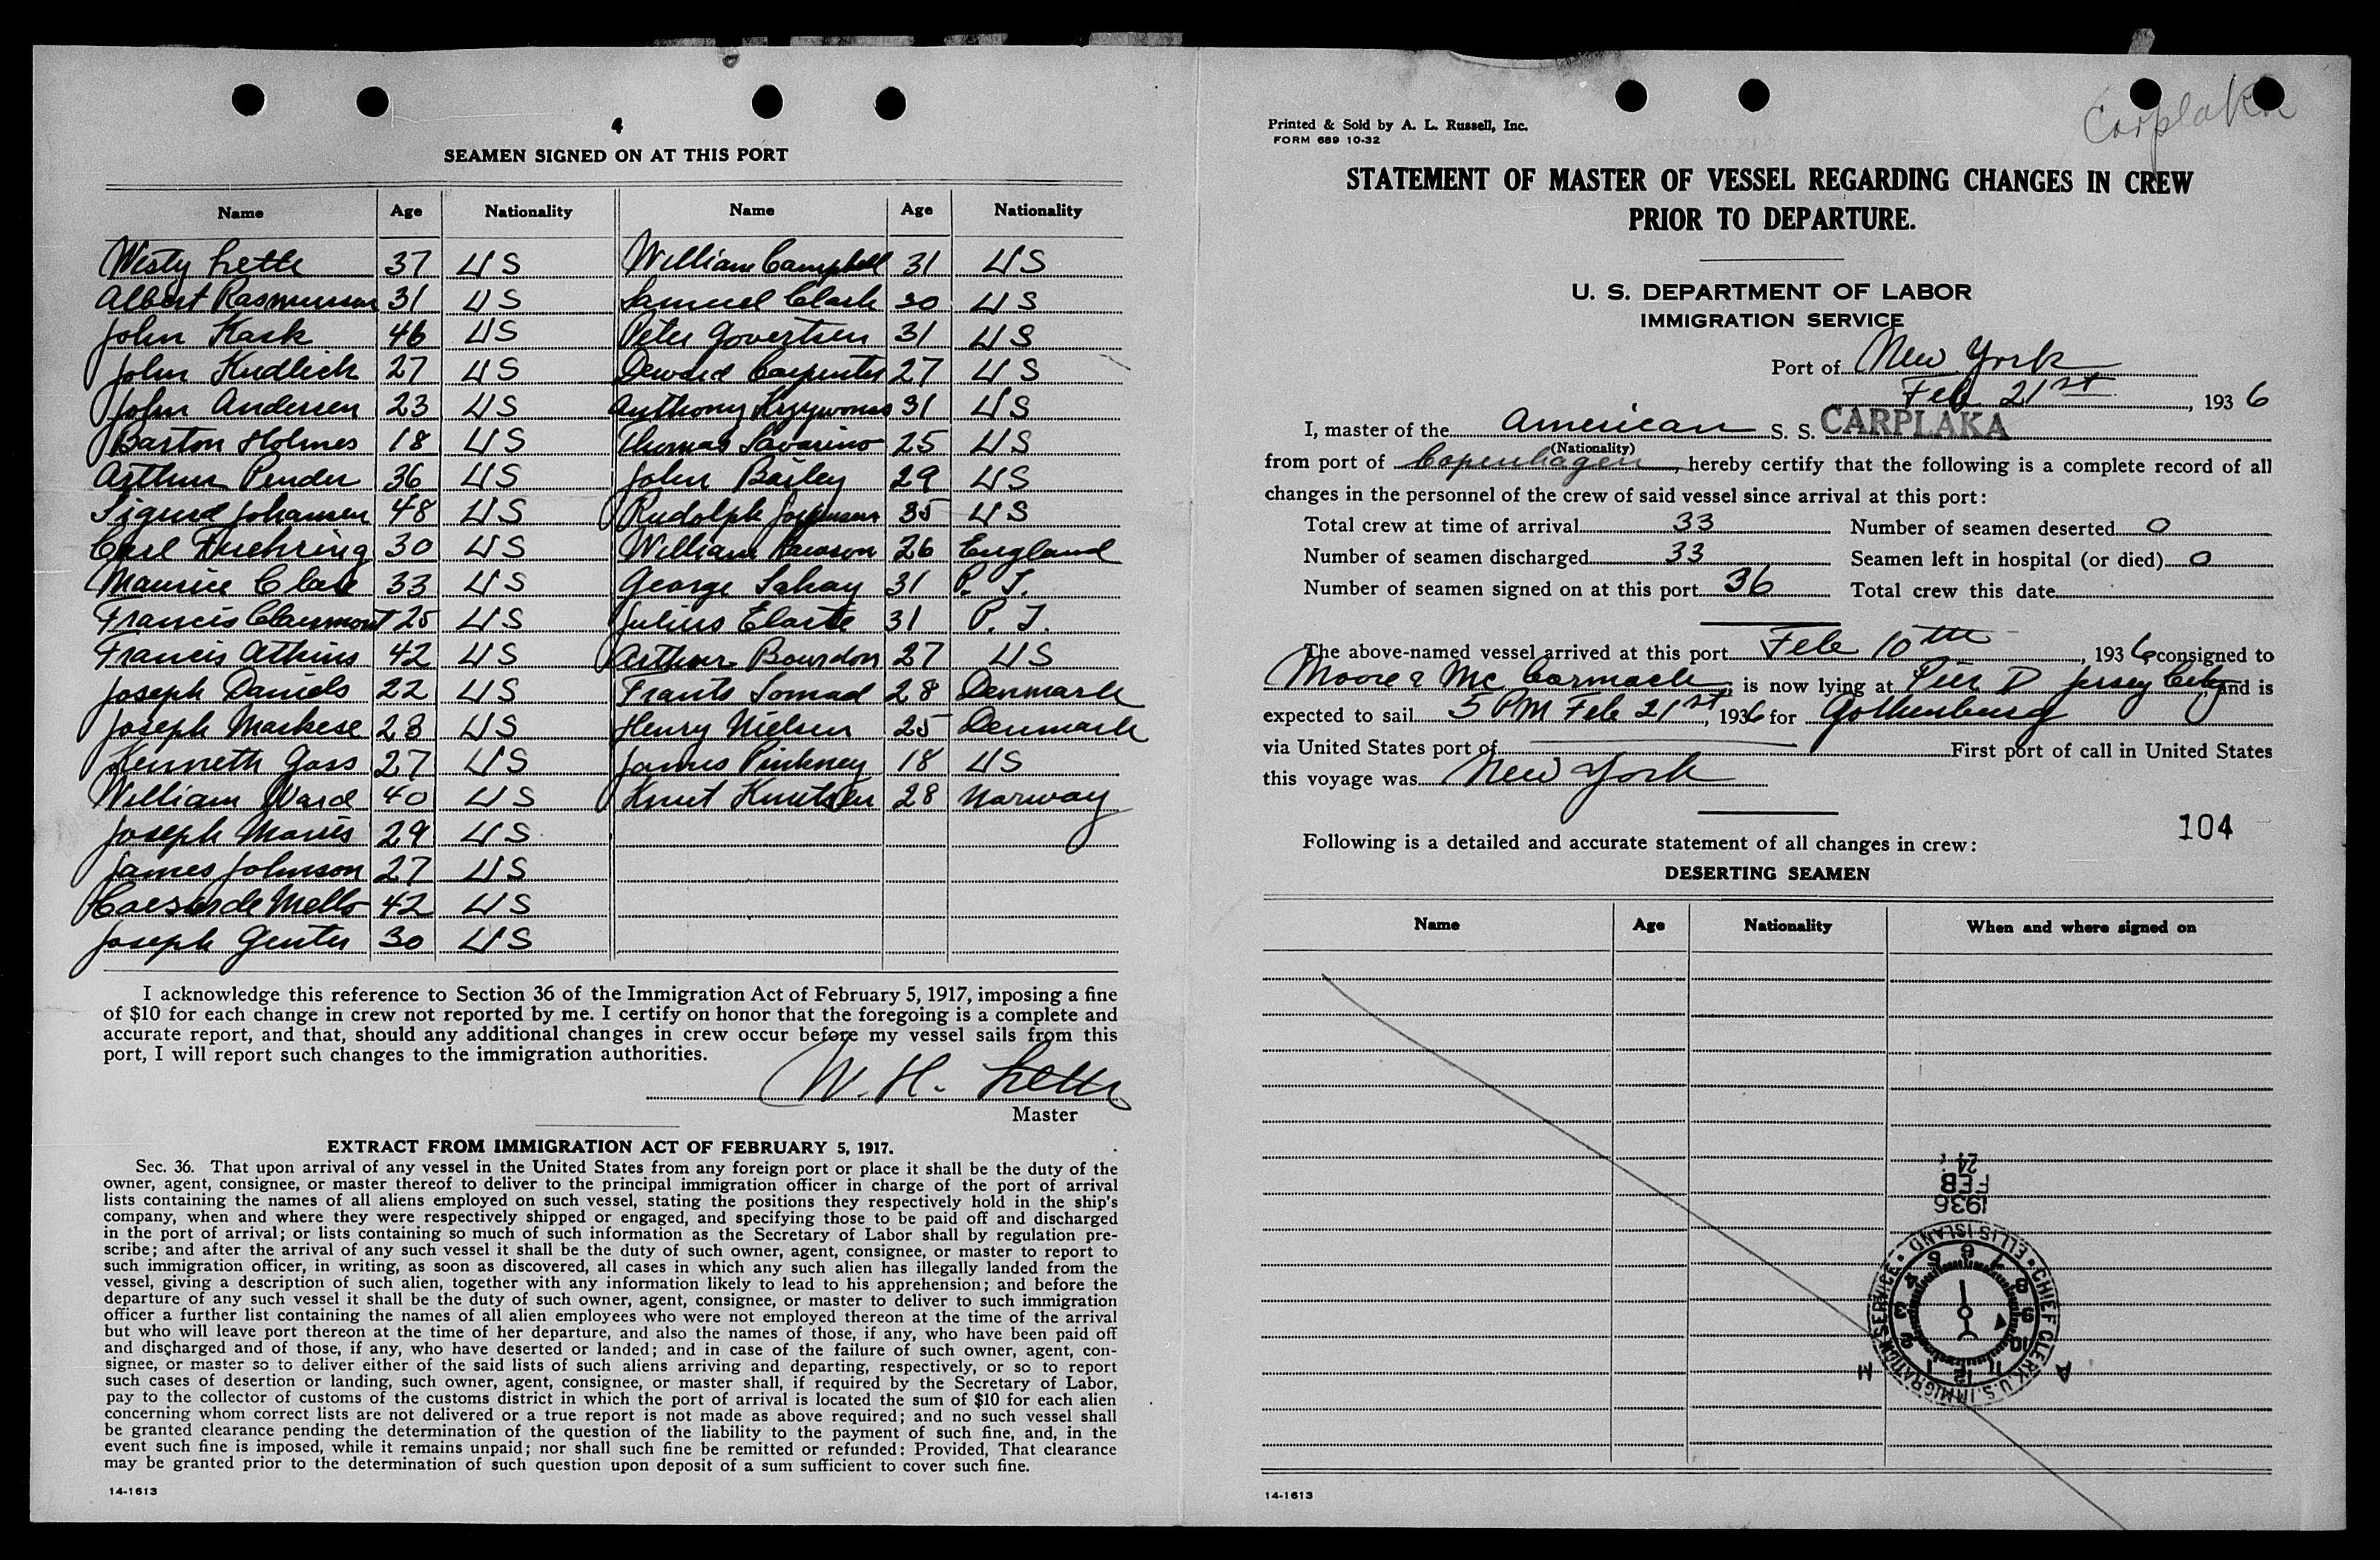 4
SEAMEN SIGNED ON AT THIS PORT
Name Age Nationality Name Age Nationality
Westy Lette 37 US William Campbell 31 US
Albert Rasmussen 31 US Samuel Clark 30 US
John Kask 46 US Peter Govertsen 31 US
John Kudlich 27 US Carpenter 27 US
John Andersen 23 US Anthony 31 US
Barton Holmes 18 US Thomas Savarino 25 US
Arthur Pender 36 US John Bailey 29 US
Sigurd Johansen 48 US Rudolph 35 US
Carl Fuehring 30 US William 26 England
Maurice 33 US George 31 P. I.
Francis Clairmont 25 US Julius Elarte 31 P. I.
Francis Atkins 42 US Arthur Bourdon 27 US
Joseph Daniels 22 US Frants Lomad 28 Denmark
Joseph Markese 23 US Henry Nielsen 25 Denmark
Kenneth Gass 27 US James Pinkney 18 US
William Ward 40 US Knut Knutsen 28 Norway
Joseph 29 US
James Johnson 27 US
de Mello 42 US
Joseph Genter 30 US
I acknowledge this reference to Section 36 of the Immigration Act of February 5, 1917, imposing a fine
of $10 for each change in crew not reported by me. I certify on honor that the foregoing is a complete and
accurate report, and that, should any additional changes in crew occur before my vessel sails from this
port, I will report such changes to the immigration authorities.
W. H. Lette
Master
EXTRACT FROM IMMIGRATION ACT OF FEBRUARY 5, 1917.
Sec. 36. That upon arrival of any vessel in the United States from any foreign port or place it shall be the duty of the
owner, agent, consignee, or master thereof to deliver to the principal immigration officer in charge of the port of arrival
lists containing the names of all aliens employed on such vessel, stating the positions they respectively hold in the ship's
company, when and where they were respectively shipped or engaged, and specifying those to be paid off and discharged
in the port of arrival; or lists containing so much of such information as the Secretary of Labor shall by regulation pre-
scribe; and after the arrival of any such vessel it shall be the duty of such owner, agent, consignee, or master to report to
such immigration officer, in writing, as soon as discovered, all cases in which any such alien has illegally landed from the
vessel, giving a description of such alien, together with any information likely to lead to his apprehension; and before the
departure of any such vessel it shall be the duty of such owner, agent, consignee, or master to deliver to such immigration
officer a further list containing the names of all alien employees who were not employed thereon at the time of the arrival
but who will leave port thereon at the time of her departure, and also the names of those, if any, who have been paid off
and discharged and of those, if any, who have deserted or landed; and in case of the failure of such owner, agent, con-
signee, or master so to deliver either of the said lists of such aliens arriving and departing, respectively, or so to report
such cases of desertion or landing, such owner, agent, consignee, or master shall, if required by the Secretary of Labor,
pay to the collector of customs of the customs district in which the port of arrival is located the sum of $10 for each alien
concerning whom correct lists are not delivered or a true report is not made as above required; and no such vessel shall
be granted clearance pending the determination of the question of the liability to the payment of such fine, and, in the
event such fine is imposed, while it remains unpaid; nor shall such fine be remitted or refunded: Provided, That clearance
may be granted prior to the determination of such question upon deposit of a sum sufficient to cover such fine.
14-1613
Carplaka
Printed & Sold by A. L. Russell, Inc.
FORM 689 10-32
STATEMENT OF MASTER OF VESSEL REGARDING CHANGES IN CREW
PRIOR TO DEPARTURE.
U. S. DEPARTMENT OF LABOR
IMMIGRATION SERVICE
Port of New York
Feb 21st, 1936
I, master of the American S. S. CARPLAKA
(Nationality)
from port of Copenhagen, hereby certify that the following is a complete record of all
changes in the personnel of the crew of said vessel since arrival at this port:
Total crew at time of arrival 33 Number of seamen deserted 0
Number of seamen discharged 33 Seamen left in hospital (or died) 0
Number of seamen signed on at this port 36 Total crew this date
The above-named vessel arrived at this port Feb 10th, 1936, consigned to
Moore & McCormack, is now lying at Pier D Jersey City and is
expected to sail 5 PM Feb 21st, 1936 for Gothenburg
via United States port of First port of call in United States
this voyage was New York
104
Following is a detailed and accurate statement of all changes in crew:
DESERTING SEAMEN
Name Age Nationality When and where signed on
1936
FEB
24
CHIEF CLERK U.S. IMMIGRATION SERVICE • ELLIS ISLAND •
14-1613